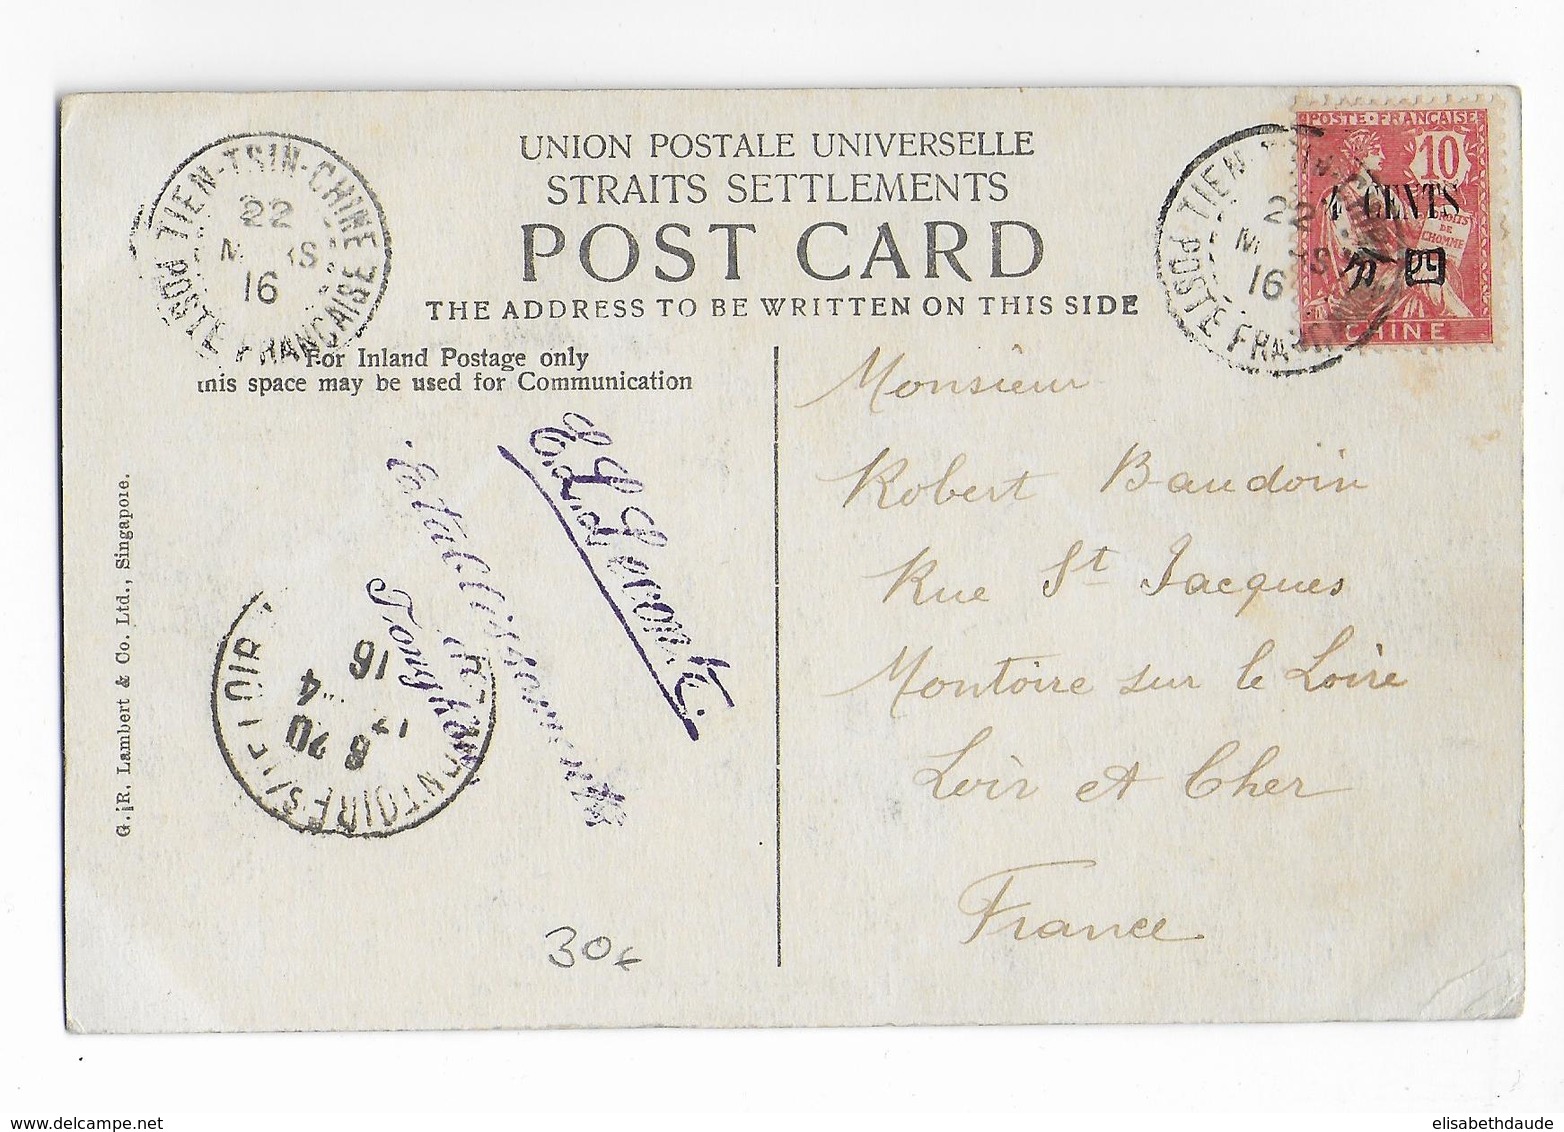 UNION POSTALE UNIVERSELLE
STRAITS SETTLEMENTS
POST CARD
THE ADDRESS TO BE WRITTEN ON THIS SIDE
TIEN-TSIN-CHINE
22
16
POSTE FRANÇAISE
TIEN
22
16
POSTE
POSTE FRANÇAISE
10
4 CENTS
DROITS
DE
L'HOMME
分四
CHINE
For Inland Postage only
this space may be used for Communication
Monsieur
Robert Baudoin
Rue St Jacques
Montoire sur le Loire
Loir et Cher
France
E. L. Lecomte.
Etablissements
Tongkou
MONTOIRE S/LE LOIR
8 20
4
16
G. R. Lambert & Co. Ltd., Singapore.
30€
elisabethdaude